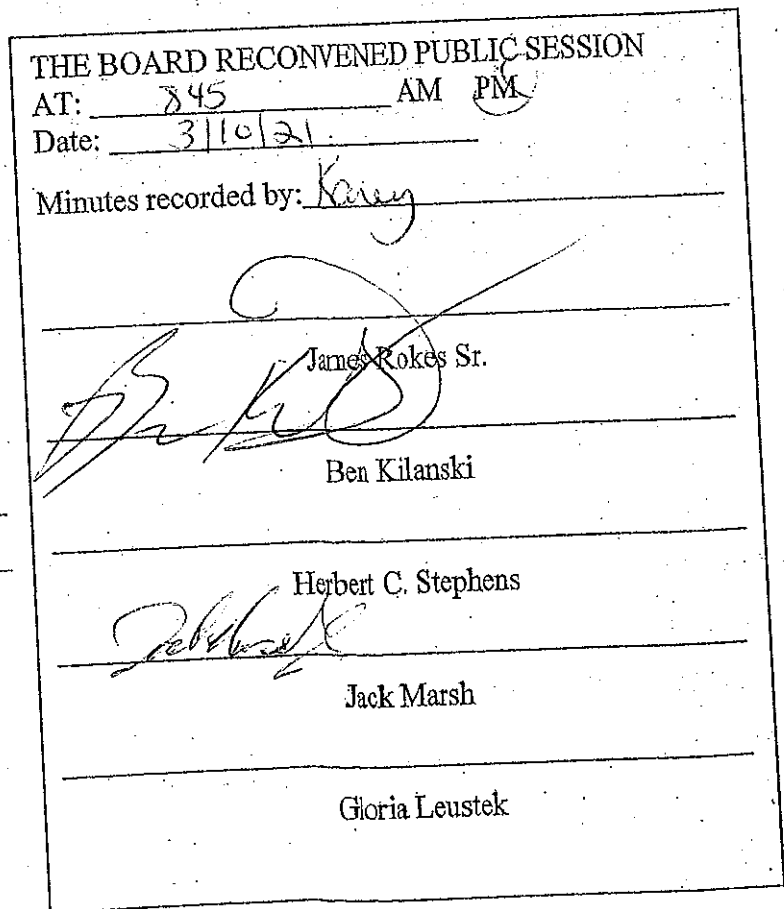 THE BOARD RECONVENED PUBLIC SESSION
AT: 845 AM PM
Date: 3|10|21
Minutes recorded by:
James Rokes Sr.
Ben Kilanski
Herbert C. Stephens
Jack Marsh
Gloria Leustek